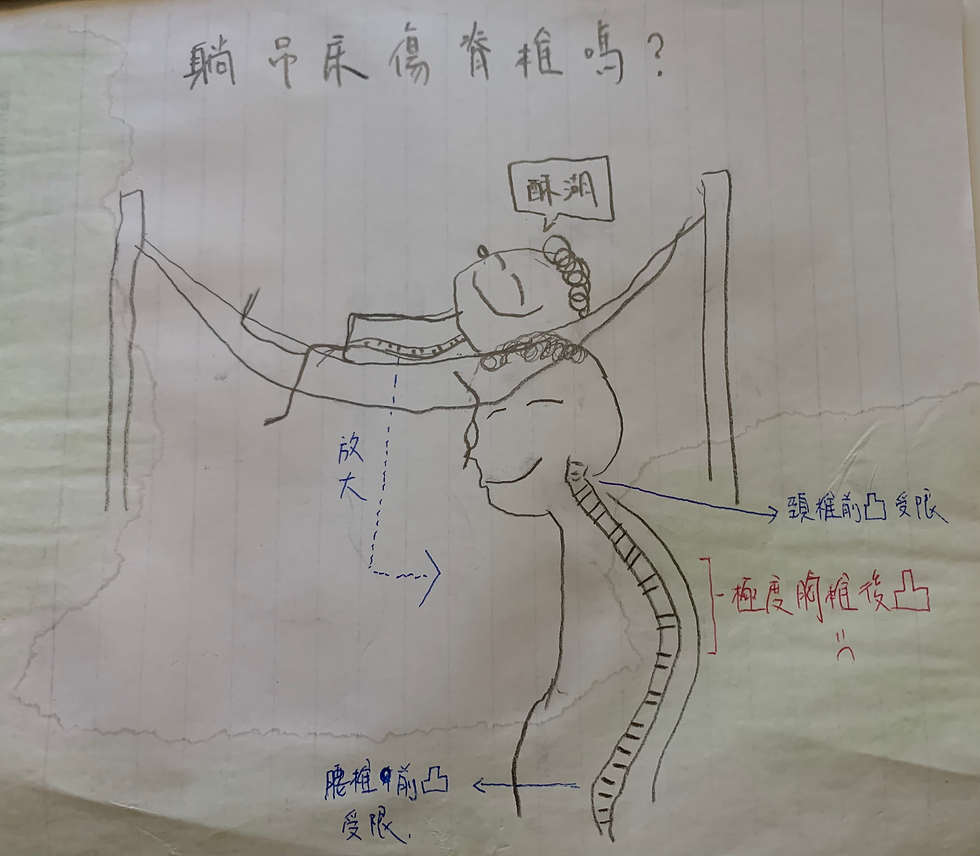 躺吊床傷脊椎嗎？
酥湖
放大
頸椎前凸受限
極度胸椎後凸
腰椎前凸
受限.